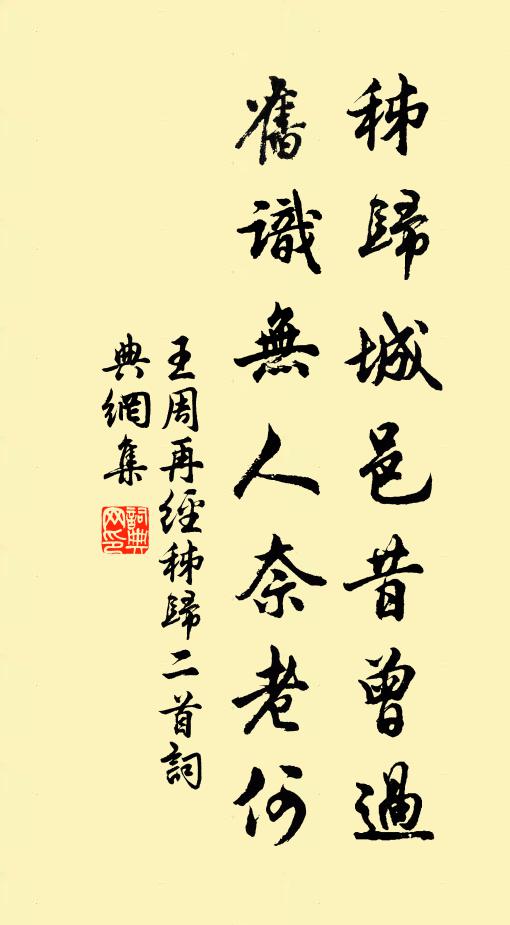 秭歸城邑昔曾過
舊識無人奈老何
王周再經秭歸二首詞
典網集
詞典網印